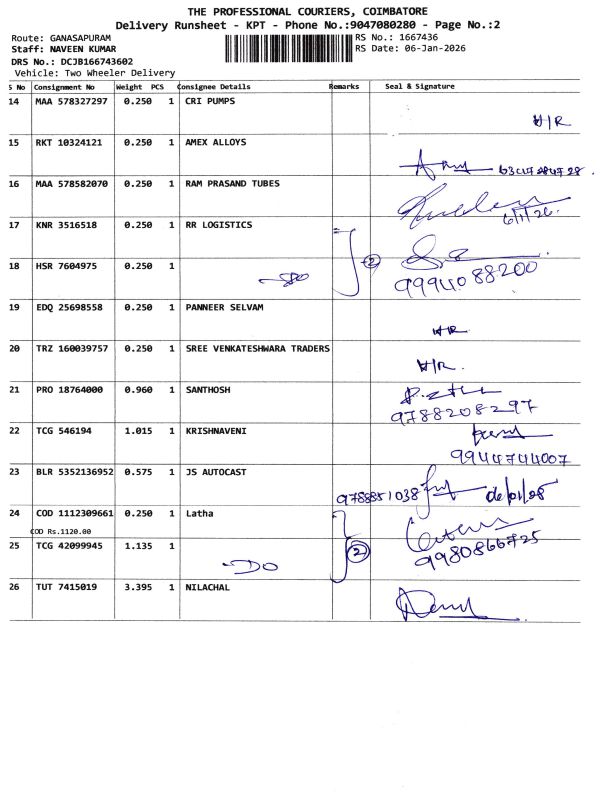 THE PROFESSIONAL COURIERS, COIMBATORE
Delivery Runsheet - KPT - Phone No.:9047080280 - Page No.:2
Route: GANASAPURAM
RS No.: 1667436
Staff: NAVEEN KUMAR
RS Date: 06-Jan-2026
DRS No.: DCJB166743602
Vehicle: Two Wheeler Delivery
S No Consignment No Weight PCS Consignee Details Remarks Seal & Signature
14 MAA 578327297 0.250 1 CRI PUMPS
H/R
15 RKT 10324121 0.250 1 AMEX ALLOYS
16 MAA 578582070 0.250 1 RAM PRASAND TUBES
6/1/26.
17 KNR 3516518 0.250 1 RR LOGISTICS
2
18 HSR 7604975 0.250 1
9994088200
19 EDQ 25698558 0.250 1 PANNEER SELVAM
H/R
20 TRZ 160039757 0.250 1 SREE VENKATESHWARA TRADERS
H/R.
21 PRO 18764000 0.960 1 SANTHOSH
9788208297
22 TCG 546194 1.015 1 KRISHNAVENI
9944744007
23 BLR 5352136952 0.575 1 JS AUTOCAST
9788851038
24 COD 1112309661 0.250 1 Latha
COD Rs.1120.00
9980866725
25 TCG 42099945 1.135 1
DO 2
26 TUT 7415019 3.395 1 NILACHAL